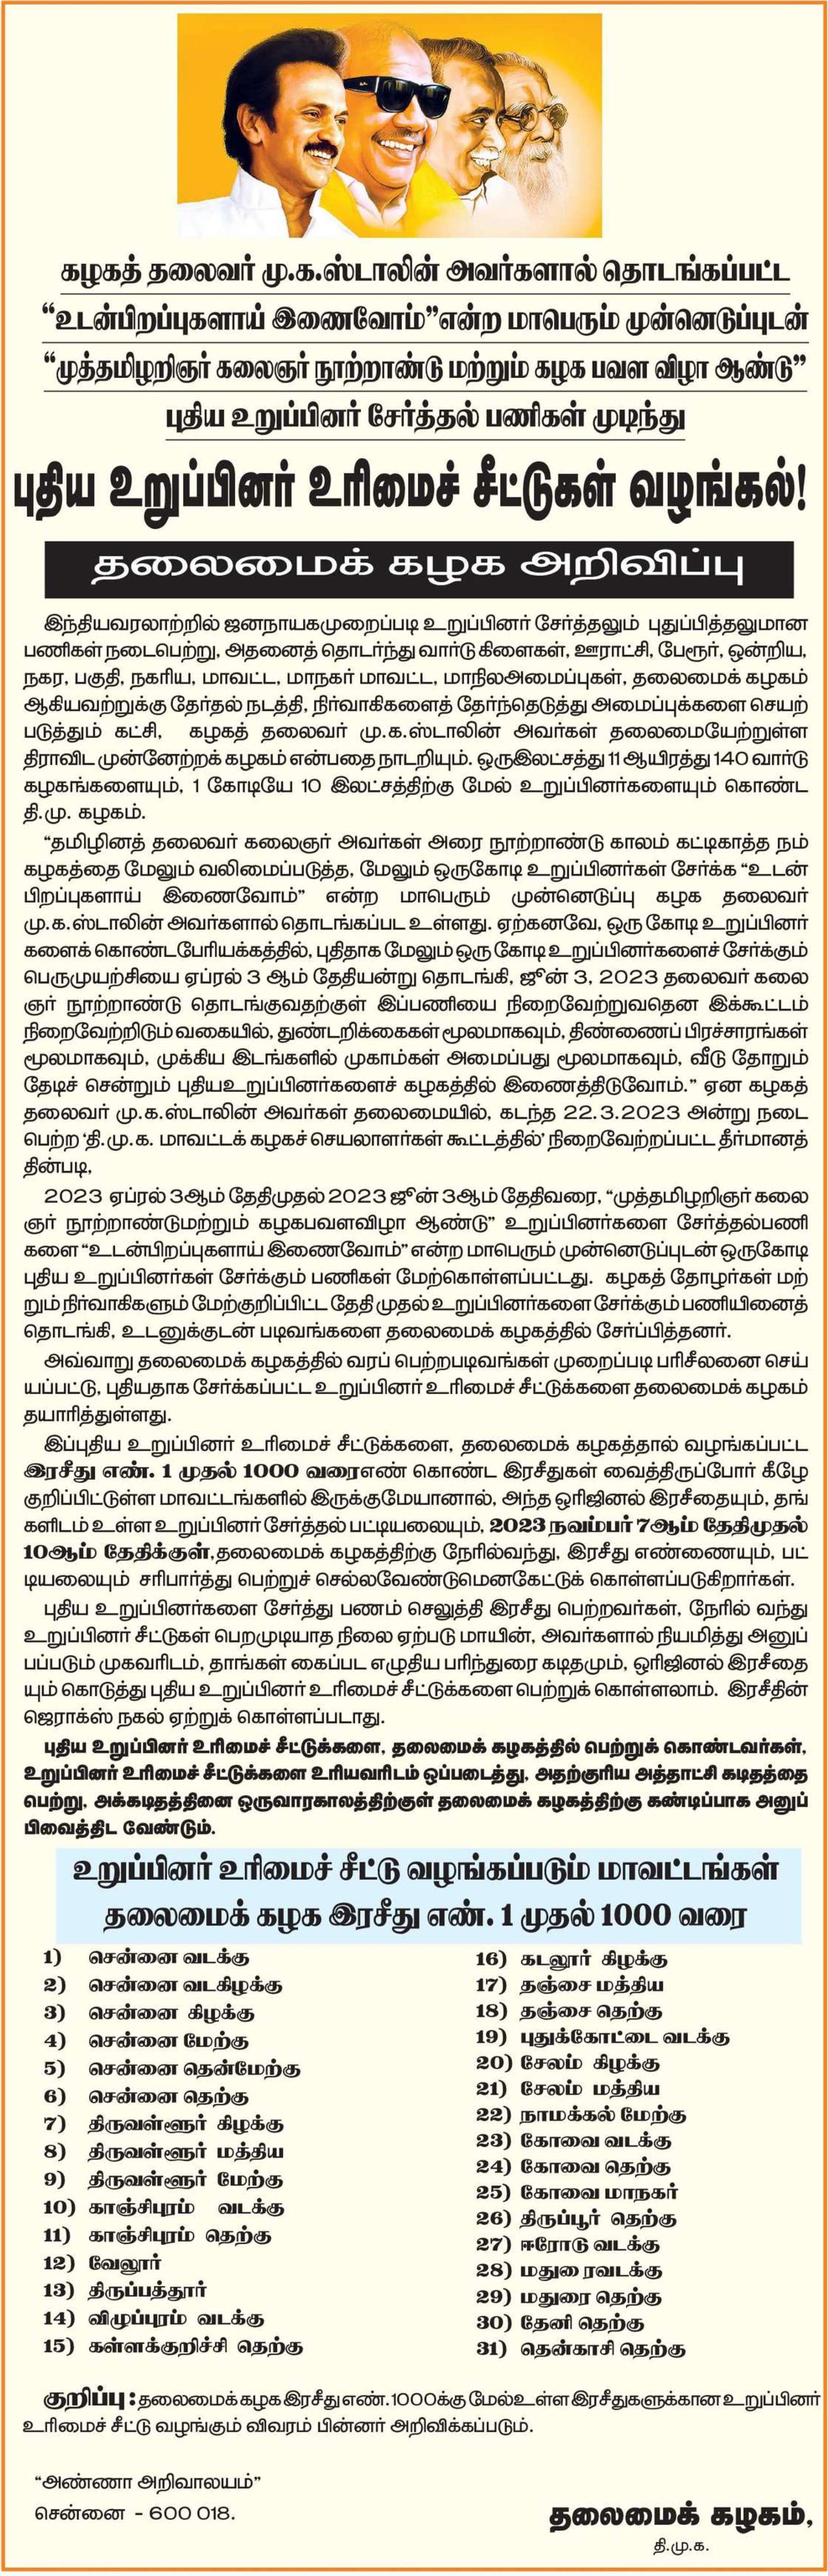 கழகத் தலைவர் மு.க.ஸ்டாலின் அவர்களால் தொடங்கப்பட்ட
“உடன்பிறப்புகளாய் இணைவோம்”என்ற மாபெரும் முன்னெடுப்புடன்
“முத்தமிழறிஞர் கலைஞர் நூற்றாண்டு மற்றும் கழக பவள விழா ஆண்டு”
புதிய உறுப்பினர் சேர்த்தல் பணிகள் முடிந்து
புதிய உறுப்பினர் உரிமைச் சீட்டுகள் வழங்கல்!
தலைமைக் கழக அறிவிப்பு
இந்தியவரலாற்றில் ஜனநாயகமுறைப்படி உறுப்பினர் சேர்த்தலும் புதுப்பித்தலுமான
பணிகள் நடைபெற்று, அதனைத் தொடர்ந்து வார்டு கிளைகள், ஊராட்சி, பேரூர், ஒன்றிய,
நகர, பகுதி, நகரிய, மாவட்ட, மாநகர் மாவட்ட, மாநிலஅமைப்புகள், தலைமைக் கழகம்
ஆகியவற்றுக்கு தேர்தல் நடத்தி, நிர்வாகிகளைத் தேர்ந்தெடுத்து அமைப்புக்களை செயற்
படுத்தும் கட்சி, கழகத் தலைவர் மு.க.ஸ்டாலின் அவர்கள் தலைமையேற்றுள்ள
திராவிட முன்னேற்றக் கழகம் என்பதை நாடறியும். ஒருஇலட்சத்து 11 ஆயிரத்து 140 வார்டு
கழகங்களையும், 1 கோடியே 10 இலட்சத்திற்கு மேல் உறுப்பினர்களையும் கொண்ட
தி.மு. கழகம்.
“தமிழினத் தலைவர் கலைஞர் அவர்கள் அரை நூற்றாண்டு காலம் கட்டிகாத்த நம்
கழகத்தை மேலும் வலிமைப்படுத்த, மேலும் ஒருகோடி உறுப்பினர்கள் சேர்க்க “உடன்
பிறப்புகளாய் இணைவோம்” என்ற மாபெரும் முன்னெடுப்பு கழக தலைவர்
மு.க.ஸ்டாலின் அவர்களால் தொடங்கப்பட உள்ளது. ஏற்கனவே, ஒரு கோடி உறுப்பினர்
களைக் கொண்டபேரியக்கத்தில், புதிதாக மேலும் ஒரு கோடி உறுப்பினர்களைச் சேர்க்கும்
பெருமுயற்சியை ஏப்ரல் 3 ஆம் தேதியன்று தொடங்கி, ஜூன் 3, 2023 தலைவர் கலை
ஞர் நூற்றாண்டு தொடங்குவதற்குள் இப்பணியை நிறைவேற்றுவதென இக்கூட்டம்
நிறைவேற்றிடும் வகையில், துண்டறிக்கைகள் மூலமாகவும், திண்ணைப் பிரச்சாரங்கள்
மூலமாகவும், முக்கிய இடங்களில் முகாம்கள் அமைப்பது மூலமாகவும், வீடு தோறும்
தேடிச் சென்றும் புதியஉறுப்பினர்களைச் கழகத்தில் இணைத்திடுவோம்.” ஏன கழகத்
தலைவர் மு.க.ஸ்டாலின் அவர்கள் தலைமையில், கடந்த 22.3.2023 அன்று நடை
பெற்ற ‘தி.மு.க. மாவட்டக் கழகச் செயலாளர்கள் கூட்டத்தில்’ நிறைவேற்றப்பட்ட தீர்மானத்
தின்படி,
2023 ஏப்ரல் 3ஆம் தேதிமுதல் 2023 ஜூன் 3ஆம் தேதிவரை, “முத்தமிழறிஞர் கலை
ஞர் நூற்றாண்டுமற்றும் கழகபவளவிழா ஆண்டு” உறுப்பினர்களை சேர்த்தல்பணி
களை “உடன்பிறப்புகளாய் இணைவோம்” என்ற மாபெரும் முன்னெடுப்புடன் ஒருகோடி
புதிய உறுப்பினர்கள் சேர்க்கும் பணிகள் மேற்கொள்ளப்பட்டது. கழகத் தோழர்கள் மற்
றும் நிர்வாகிகளும் மேற்குறிப்பிட்ட தேதி முதல் உறுப்பினர்களை சேர்க்கும் பணியினைத்
தொடங்கி, உடனுக்குடன் படிவங்களை தலைமைக் கழகத்தில் சேர்ப்பித்தனர்.
அவ்வாறு தலைமைக் கழகத்தில் வரப் பெற்றபடிவங்கள் முறைப்படி பரிசீலனை செய்
யப்பட்டு, புதியதாக சேர்க்கப்பட்ட உறுப்பினர் உரிமைச் சீட்டுக்களை தலைமைக் கழகம்
தயாரித்துள்ளது.
இப்புதிய உறுப்பினர் உரிமைச் சீட்டுக்களை, தலைமைக் கழகத்தால் வழங்கப்பட்ட
இரசீது எண். 1 முதல் 1000 வரைஎண் கொண்ட இரசீதுகள் வைத்திருப்போர் கீழே
குறிப்பிட்டுள்ள மாவட்டங்களில் இருக்குமேயானால், அந்த ஒரிஜினல் இரசீதையும், தங்
களிடம் உள்ள உறுப்பினர் சேர்த்தல் பட்டியலையும், 2023 நவம்பர் 7ஆம் தேதிமுதல்
10ஆம் தேதிக்குள்,தலைமைக் கழகத்திற்கு நேரில்வந்து, இரசீது எண்ணையும், பட்
டியலையும் சரிபார்த்து பெற்றுச் செல்லவேண்டுமெனகேட்டுக் கொள்ளப்படுகிறார்கள்.
புதிய உறுப்பினர்களை சேர்த்து பணம் செலுத்தி இரசீது பெற்றவர்கள், நேரில் வந்து
உறுப்பினர் சீட்டுகள் பெறமுடியாத நிலை ஏற்படு மாயின், அவர்களால் நியமித்து அனுப்
பப்படும் முகவரிடம், தாங்கள் கைப்பட எழுதிய பரிந்துரை கடிதமும், ஒரிஜினல் இரசீதை
யும் கொடுத்து புதிய உறுப்பினர் உரிமைச் சீட்டுக்களை பெற்றுக் கொள்ளலாம். இரசீதின்
ஜெராக்ஸ் நகல் ஏற்றுக் கொள்ளப்படாது.
புதிய உறுப்பினர் உரிமைச் சீட்டுக்களை, தலைமைக் கழகத்தில் பெற்றுக் கொண்டவர்கள்,
உறுப்பினர் உரிமைச் சீட்டுக்களை உரியவரிடம் ஒப்படைத்து, அதற்குரிய அத்தாட்சி கடிதத்தை
பெற்று, அக்கடிதத்தினை ஒருவாரகாலத்திற்குள் தலைமைக் கழகத்திற்கு கண்டிப்பாக அனுப்
பிவைத்திட வேண்டும்.
உறுப்பினர் உரிமைச் சீட்டு வழங்கப்படும் மாவட்டங்கள்
தலைமைக் கழக இரசீது எண். 1 முதல் 1000 வரை
1) சென்னை வடக்கு
2) சென்னை வடகிழக்கு
3) சென்னை கிழக்கு
4) சென்னை மேற்கு
5) சென்னை தென்மேற்கு
6) சென்னை தெற்கு
7) திருவள்ளூர் கிழக்கு
8) திருவள்ளூர் மத்திய
9) திருவள்ளூர் மேற்கு
10) காஞ்சிபுரம் வடக்கு
11) காஞ்சிபுரம் தெற்கு
12) வேலூர்
13) திருப்பத்தூர்
14) விழுப்புரம் வடக்கு
15) கள்ளக்குறிச்சி தெற்கு
16) கடலூர் கிழக்கு
17) தஞ்சை மத்திய
18) தஞ்சை தெற்கு
19) புதுக்கோட்டை வடக்கு
20) சேலம் கிழக்கு
21) சேலம் மத்திய
22) நாமக்கல் மேற்கு
23) கோவை வடக்கு
24) கோவை தெற்கு
25) கோவை மாநகர்
26) திருப்பூர் தெற்கு
27) ஈரோடு வடக்கு
28) மதுரைவடக்கு
29) மதுரை தெற்கு
30) தேனி தெற்கு
31) தென்காசி தெற்கு
குறிப்பு : தலைமைக் கழக இரசீது எண். 1000க்கு மேல் உள்ள இரசீதுகளுக்கான உறுப்பினர்
உரிமைச் சீட்டு வழங்கும் விவரம் பின்னர் அறிவிக்கப்படும்.
“அண்ணா அறிவாலயம்”
சென்னை - 600 018.
தலைமைக் கழகம்,
தி.மு.க.